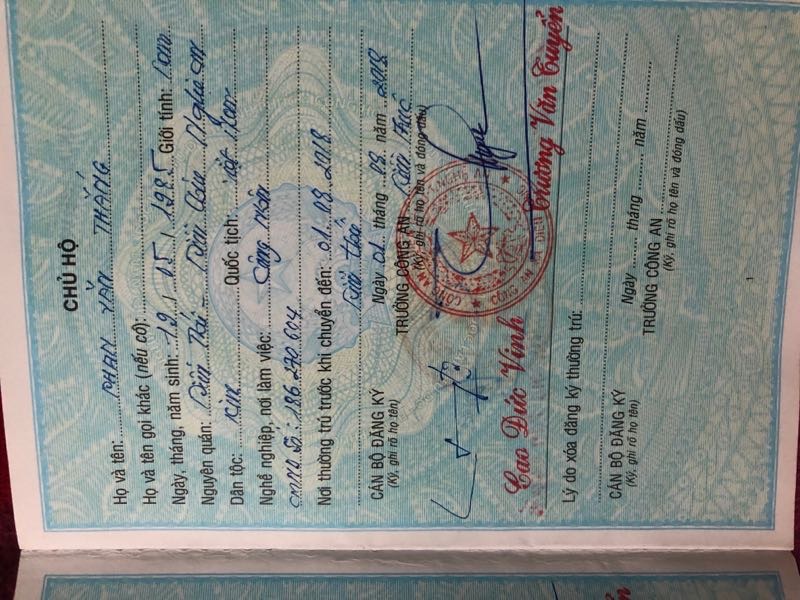 CHỦ HỘ
Họ và tên: PHAN VĂN THẮNG
Họ và tên gọi khác (nếu có):
Ngày, tháng, năm sinh: 19 / 05 / 1985 Giới tính: Nam
Nguyên quán: Diễn Châu Nghệ An
Dân tộc: Kinh Quốc tịch: Việt Nam
Nghề nghiệp, nơi làm việc: Công Nhân
CMND Số: 186 270 604
Nơi thường trú trước khi chuyển đến: 01. 08 2018
CÁN BỘ ĐĂNG KÝ Ngày 01 tháng 08 năm 2018
(Ký, ghi rõ họ tên) TRƯỞNG CÔNG AN
(Ký, ghi rõ họ tên và đóng dấu)
CÔNG AN
Cao Đức Vinh
Trương Văn Tuyển
Lý do xóa đăng ký thường trú:
CÁN BỘ ĐĂNG KÝ Ngày tháng năm
(Ký, ghi rõ họ tên) TRƯỞNG CÔNG AN
(Ký, ghi rõ họ tên và đóng dấu)
1